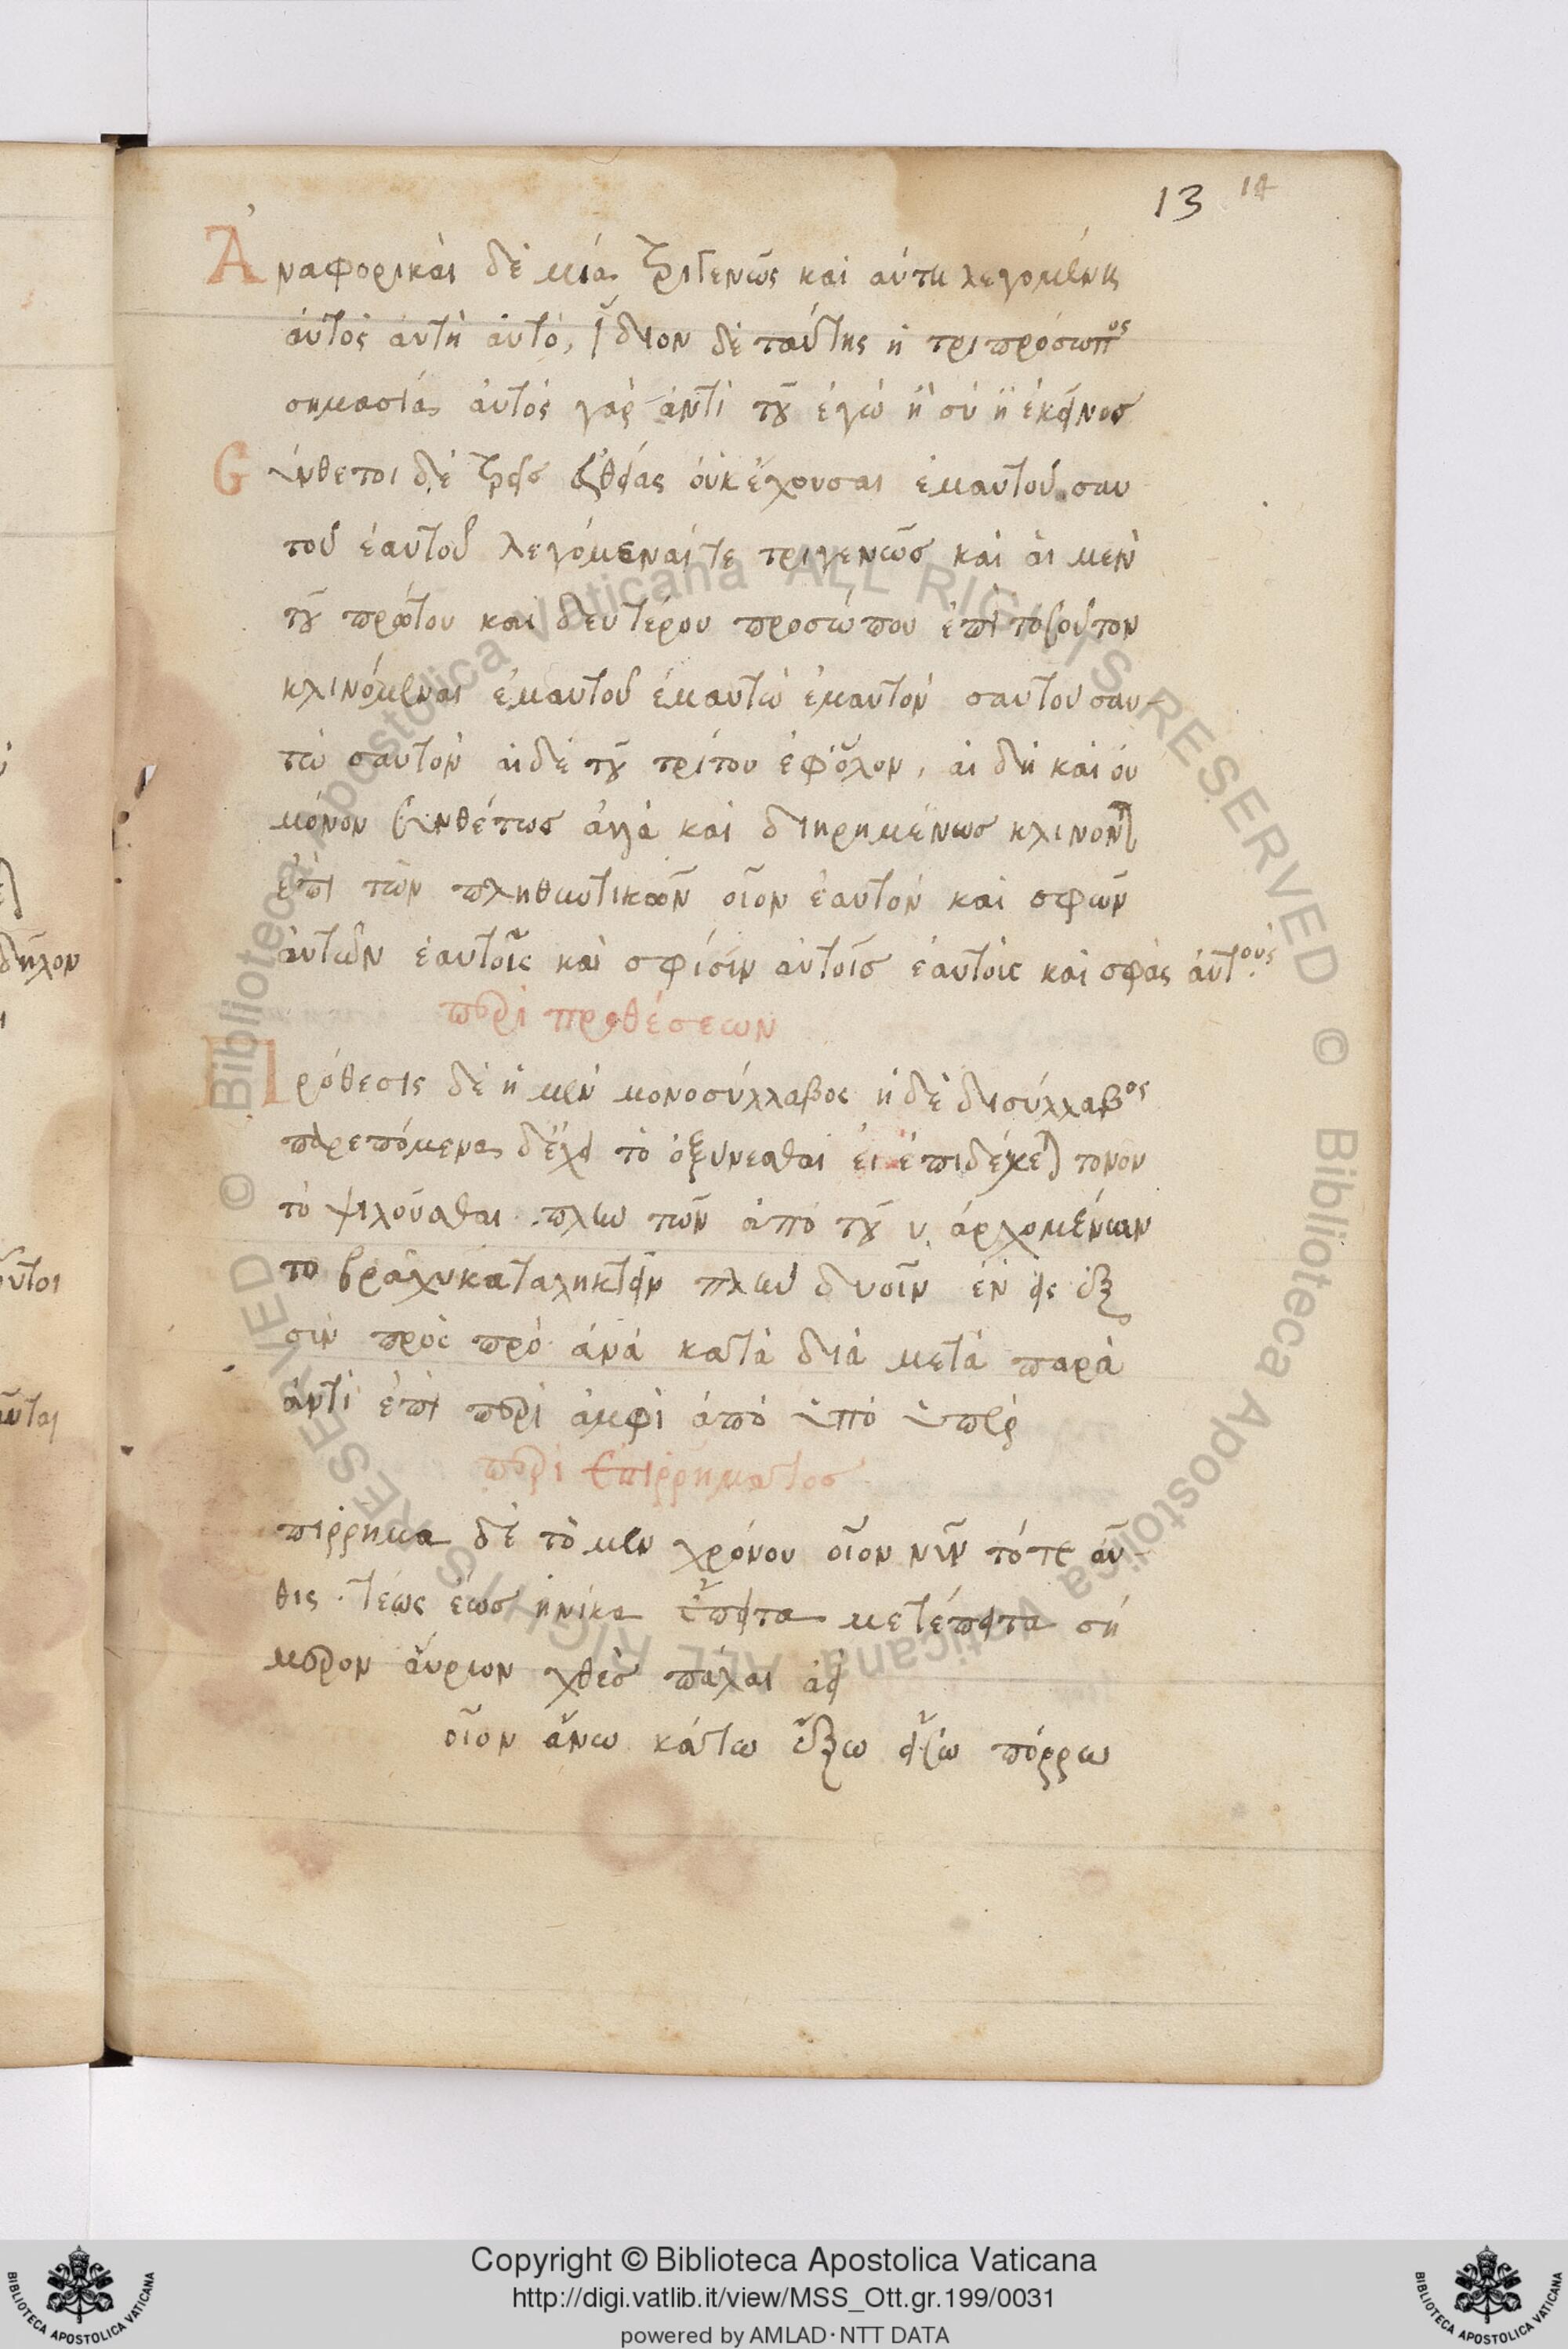 13 14
Ἀναφορικαὶ δὲ μία τριγενῶς καὶ αὐτὴ λεγομένης
αὐτὸς αὐτὴ αὐτό, ἴδιον δὲ ταύτης ἡ τριπρόσωπος
σημασία αὐτὸς γὰρ ἀντὶ τοῦ ἐγὼ ἢ σὺ ἢ ἐκεῖνος
Σύνθετοι δὲ τρεῖς εὐθείας οὐκ ἔχουσαι ἐμαυτοῦ σαυ
τοῦ ἑαυτοῦ λεγόμεναί τε τριγενῶς καὶ αἱ μὲν
τοῦ πρώτου καὶ δευτέρου προσώπου ἐπὶ τοσοῦτον
κλινόμεναι ἐμαυτοῦ ἐμαυτῶ ἐμαυτὸν σαυτοῦ σαυ-
τῶ σαυτὸν αἱ δὲ τοῦ τρίτου ἐφ' ὅλον, αἱ δὴ καὶ οὐ
μόνον συνθέτως ἀλλὰ καὶ διηρημένως κλινονται
ἐπὶ τῶν πληθυντικῶν οἷον ἑαυτὸν καὶ σφῶν
αὐτῶν ἑαυτοῖς καὶ σφίσιν αὐτοῖς ἑαυτοὶς καὶ σφὰς αὐτούς
περὶ προθέσεων
Πρόθεσις δὲ ἡ μὲν μονοσύλλαβος ἡ δὲ δισύλλαβος
παρεπόμενα δ' ἔχει τὸ ὀξύνεσθαι εἰ ἐπιδέχεται τονον
τὸ ψιλοῦσθαι πλὴν τῶν ἀπὸ τοῦ υ ἀρχομένων
το βραχυκαταληκτεῖν πλὴν δυοῖν ἐν εἰς ἐξ
σὺν πρὸς πρὸ ἀνὰ κατὰ διὰ μετὰ παρὰ
ἀντὶ ἐπὶ περὶ ἀμφὶ ἀπὸ ὑπὸ ὑπὲρ
περὶ ἐπιρρήματος
πιρρημα δὲ τὸ μὲν χρόνου οἷον νῦν τότε αὖ-
θις τέως ἕως ἡνίκα ἔπειτα μετέπειτα σή
μερον αὔριον χθὲς πάλαι ἀεὶ
οἷον ἄνω κάτω ἔξω εἴσω πόρρω
Copyright © Biblioteca Apostolica Vaticana
http://digi.vatlib.it/view/MSS_Ott.gr.199/0031
powered by AMLAD·NTT DATA